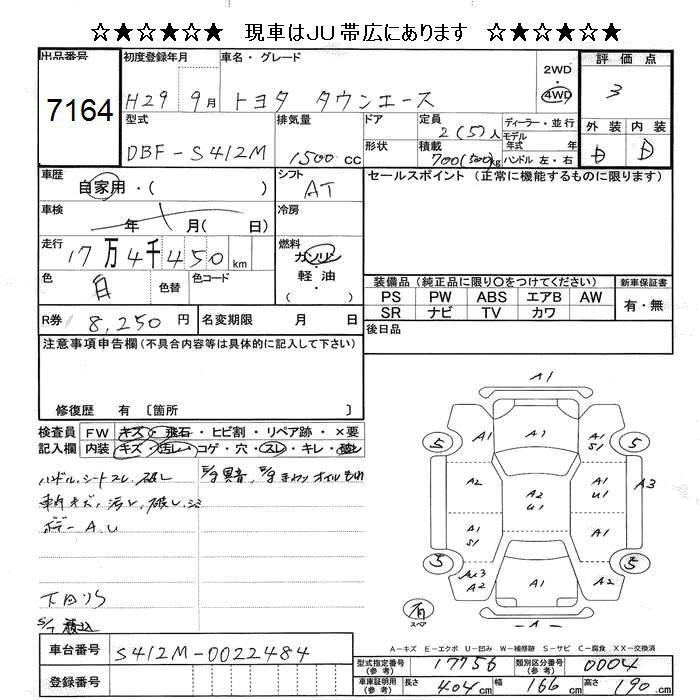 ☆★☆★☆★ 現車はJU帯広にあります ☆★☆★☆★
出品番号
7164
初度登録年月
H29 9月
車名・グレード
トヨタ タウンエース
2WD
・
4WD
評価点
3
外装 内装
D D
型式
DBF-S412M
排気量
1500cc
ドア
形状
定員
2(5)人
積載
700(500)kg
ディーラー・並行
モデル年式 年
ハンドル 左・右
車歴
自家用・( )
シフト
AT
セールスポイント (正常に機能するものに限ります)
車検
年 月( 日)
冷房
走行
17万4千450km
燃料
ガソリン
軽・油
( )
色
白
色替
色コード
装備品 (純正品に限り○をつけてください)
PS PW ABS エアB AW
SR ナビ TV カワ
新車保証書
有・無
R券 8,250円
名変期限 月 日
後日品
注意事項申告欄(不具合内容等は具体的に記入して下さい)
修復歴 有 〔箇所 〕
検査員記入欄
FW キズ・飛石・ヒビ割・リペア跡・×要
内装 キズ・汚レ・コゲ・穴・スレ・キレ・破レ
ハンドル、シートスレ、破レ
E/g異音、E/gまわりオイルもれ
ボデーA.U
下回りS
A1
5 A1 A1 A1 S1 5
A2 A2 U1 A1 U1 A3
A1 S1 A1
5 A2 A1 A2 5
有
スペア
A
A-キズ E-エクボ U-凹み W-補修跡 S-サビ C-腐食 XX-交換済
車台番号 S412M-0022484
登録番号
型式指定番号(参考) 17756
類別区分番号(参考) 0004
車庫証明用(参考) 長さ 404cm 幅 166cm 高さ 190cm